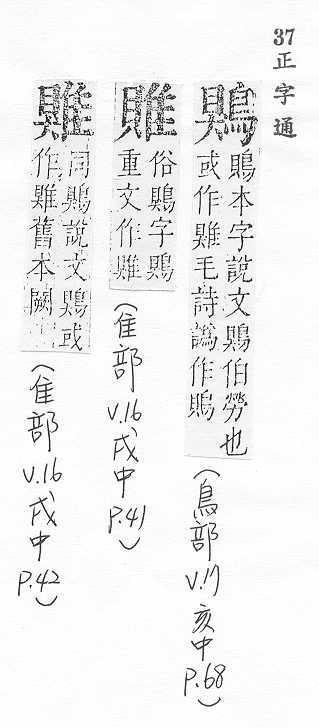 37正字通
鶪
鵙本字說文鶪伯勞也
或作毛詩譌作鵙
(鳥部 v.17 亥中 P.68)
俗鶪字鶪
重文作
(隹部 v.16 戌中 P.41)
同鶪說文鶪或
作舊本闕
(隹部 v.16 戌中 P.42)